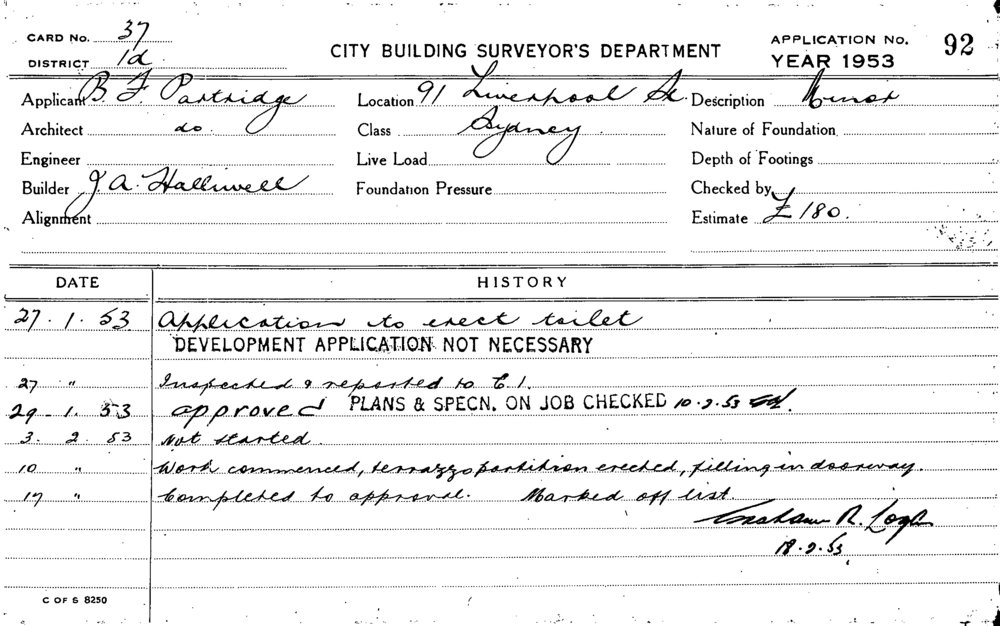 CARD No. 37
DISTRICT 1d
CITY BUILDING SURVEYOR'S DEPARTMENT
APPLICATION No. 92
YEAR 1953
Applicant B. F. Partridge
Location 91 Liverpool St.
Description Minor
Architect do.
Class Sydney
Nature of Foundation
Engineer
Live Load
Depth of Footings
Builder J. A. Halliwell
Foundation Pressure
Checked by
Alignment
Estimate £180.
DATE HISTORY
27.1.53 Application to erect toilet
DEVELOPMENT APPLICATION NOT NECESSARY
27 " Inspected & reported to C.I.
29-1.53 approved PLANS & SPECN. ON JOB CHECKED 10-2.53
3. 2. 53 Not started.
10 " Work commenced, terrazzo partition erected, filling in doorway.
17 " Completed to approval. Marked off list.
R.
18.2.53
C OF S 8250